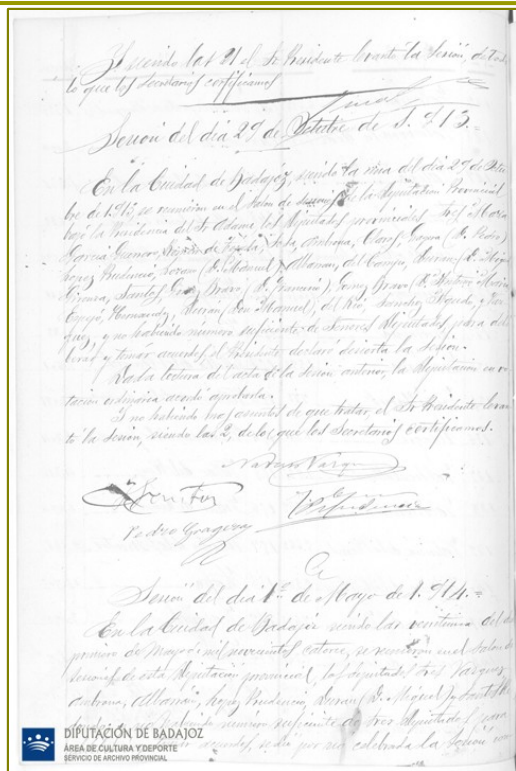 Y siendo las 21 el Sr Presidente levantó la sesión, de todo
lo que los Secretarios certificamos
Sesión del día 29 de Octubre de 1.913.=
En la Ciudad de Badajoz, siendo la una del día 29 de Octu-
bre de 1.913, se reunieron en el Salon de sesiones de la Diputación Provincial
bajo la Presidencia del Sr Adame los Diputados provinciales Sres
García Guerrero, Sosa, Ambrona, Claros, (D. Pedro)
López Prudencio, Lozano (D. Manuel), Albarrán, del Campo, Durán (D. Miguel)
Santos, Bravo (D. Francisco), Gómez Bravo (D. Antonio
Hernández, Durán (Don Manuel), del Río, Sánchez
y no habiendo número suficiente de Señores Diputados para deli-
berar y tomar acuerdos, el Presidente declaró desierta la sesión.
Dada lectura del acta de la sesión anterior, la Diputación en vo-
tación ordinaria acordó aprobarla.
Y no habiendo más asuntos de que tratar, el Sr Presidente levan-
tó la sesión, siendo las 2, de lo que los Secretarios certificamos.
Pedro Gragera
Sesión del día 1º de Mayo de 1.914.=
En la Ciudad de Badajoz siendo las veintiuna del día
primero de Mayo mil novecientos catorce, se reunieron en el Salon de
sesiones de esta Diputación provincial, los diputados Sres Vázquez,
Ambrona, Albarrán, López Prudencio, Durán (D. Miguel)
y no habiendo número suficiente de Sres Diputados para
acuerdos, se dió por no celebrada la sesión
DIPUTACIÓN DE BADAJOZ
ÁREA DE CULTURA Y DEPORTE
SERVICIO DE ARCHIVO PROVINCIAL